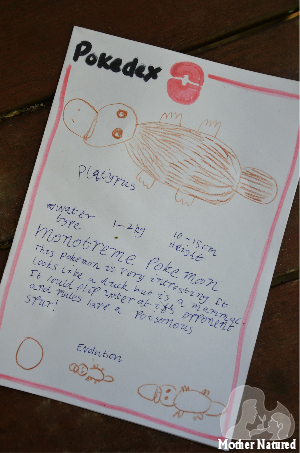 Pokedex
Platyrus
water type
1-2kg
10-15cm height
Monotreme Pokemon
this pokemon is very interesting It
looks like a duck but is a mammal.
It could flip water at its opponent
and males have a Poisonous
spur!
Evolution
Mother Natured